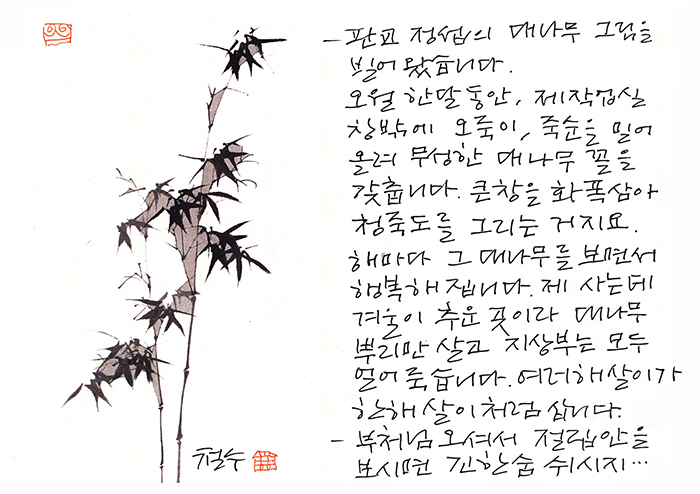 - 판교 정섭의 대나무 그림을
빌어 왔습니다.
오월 한달 동안, 제 작업실
창밖에 오죽이, 죽순을 밀어
올려 무성한 대나무 꼴을
갖춥니다. 큰 창을 화폭삼아
청죽도를 그리는 거지요.
해마다 그 대나무를 보면서
행복해 집니다. 제 사는데
겨울이 추운 곳이라 대나무
뿌리만 살고 지상부는 모두
얼어 죽습니다. 여러해살이가
한해살이처럼 삽니다.
- 부처님 오셔서 절집안을
보시면 긴 한숨 쉬시지...
철수